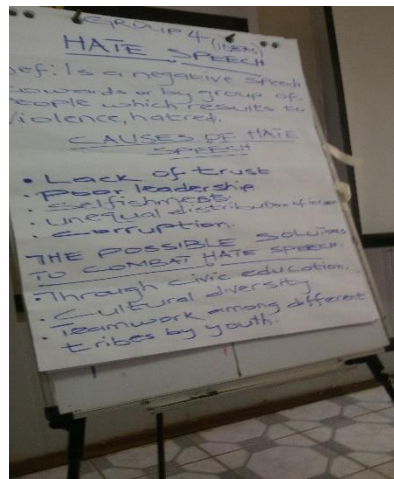 GROUP 4 (IDEAS)
HATE SPEECH
Def: Is a negative speech
towards or by group of
people which results to
violence, hatred.
CAUSES OF HATE
SPEECH
• Lack of trust
• Poor leadership
• Selfishment.
• Unequal distribution of income
• Corruption.
THE POSSIBLE SOLUTIONS
TO COMBAT HATE SPEECH.
• Through civic education.
• Cultural diversity
• Teamwork among different
tribes by youth.